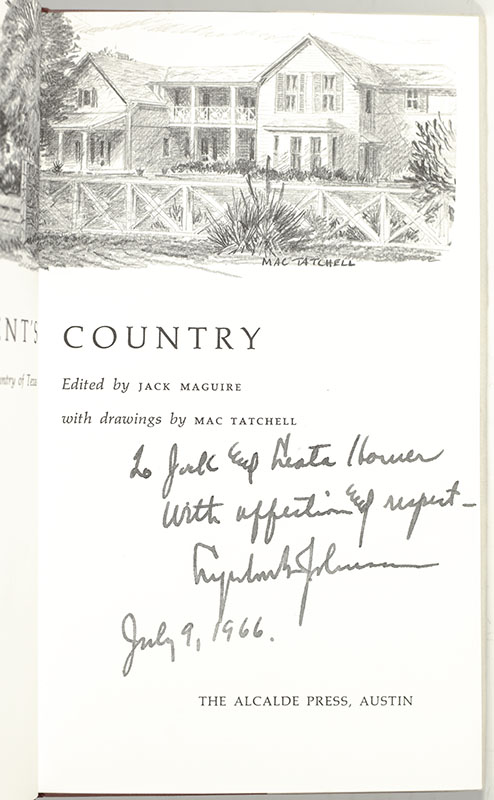 MAC TATCHELL
ENT'S
COUNTRY
ntry of Tex
Edited by JACK MAGUIRE
with drawings by MAC TATCHELL
To Jack and Leata Horner
With affection and respect—
Lyndon B Johnson
July 9, 1966.
THE ALCALDE PRESS, AUSTIN